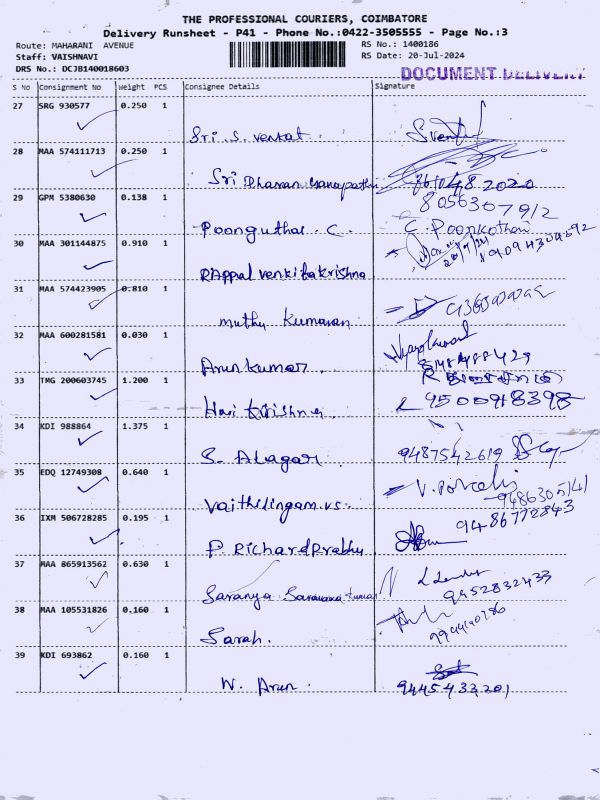 THE PROFESSIONAL COURIERS, COIMBATORE
Delivery Runsheet - P41 - Phone No.:0422-3505555 - Page No.:3
Route: MAHARANI AVENUE
RS No.: 1400186
Staff: VAISHNAVI
RS Date: 20-Jul-2024
DRS No.: DCJB140018603
DOCUMENT DELIVERY
S No Consignment No Weight PCS Consignee Details Signature
27 SRG 930577 0.250 1
Sri. S. Venkat.
28 MAA 574111713 0.250 1
Sri Dharan Ganapathi
29 GPM 5380630 0.138 1
8056307912
Poonguthai. C. C. Poonkothai
30 MAA 301144875 0.910 1
RAppal venkitakrishna
31 MAA 574423905 0.810 1
muthu kumaran
32 MAA 600281581 0.030 1
Arunkumar.
33 TMG 200603745 1.200 1
Hari Krishna 9500918398
34 KDI 988864 1.375 1
S. Alagar 9487542619
35 EDQ 12749308 0.640 1
Vaithilingam.vs.
36 IXM 506728285 0.195 1
9486772843
P. Richard Prabhu
37 MAA 865913562 0.630 1
Saranya Saravana kumar 9952832433
38 MAA 105531826 0.160 1
Sarah.
39 KDI 693862 0.160 1
W. Arun. 9445433201